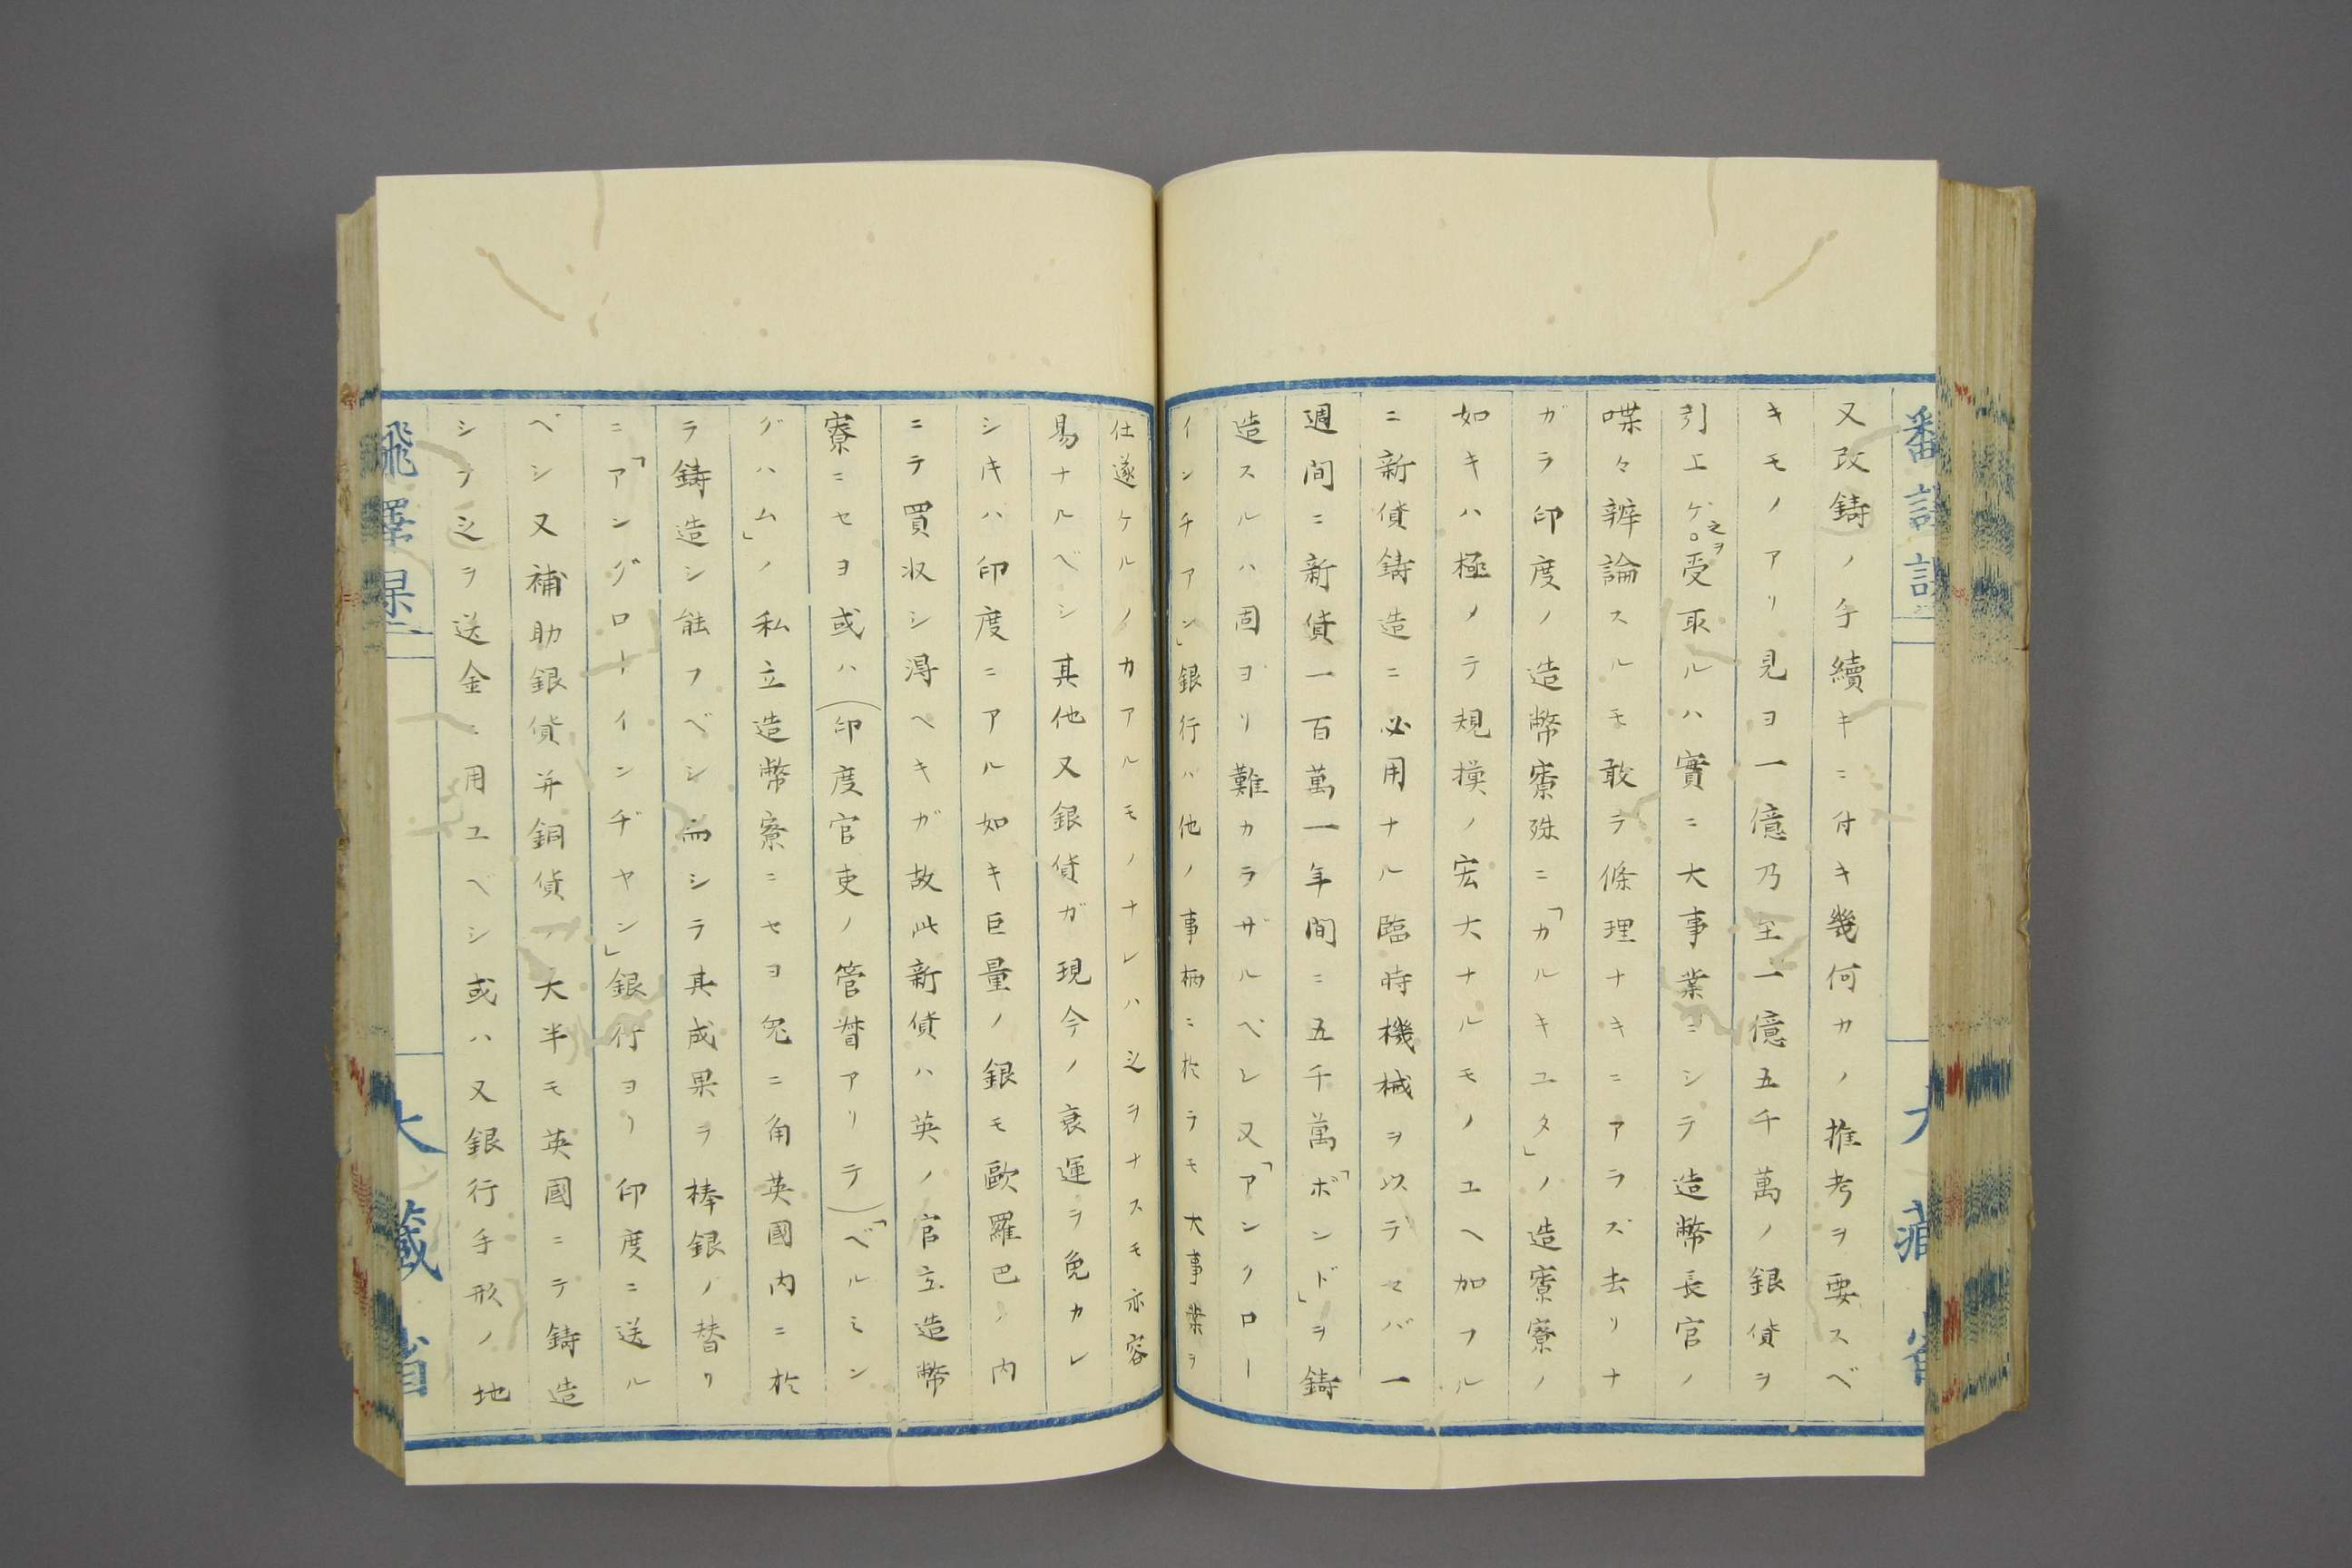 又改鋳ノ手續キニ付キ幾何カノ推考ヲ要スベ
キモノアリ見ヨ一億乃至一億五千萬ノ銀貨ヲ
引上ゲ之ヲ受取ルハ實ニ大事業ニシテ造幣長官ノ
喋々辨論スルモ敢テ條理ナキニアラズ去リナ
ガラ印度ノ造幣寮殊ニ「カルキユタ」ノ造寮寮ノ
如キハ極メテ規摸ノ宏大ナルモノユヘ加フル
ニ新貨鋳造ニ必用ナル臨時機械ヲ以デセバ一
週間ニ新貨一百萬一年間ニ五千萬「ボンド」ヲ鋳
造スルハ固ヨリ難カラザルベシ又「アンクロー
インチアン」銀行ハ他ノ事柄ニ於テモ大事業ヲ
仕遂ケルノカアルモノナレハ之ヲナスモ亦容
易ナルベシ其他又銀貨ガ現今ノ衰運ヲ免カレ
シキハ印度ニアル如キ巨量ノ銀モ歐羅巴ノ内
ニテ買収シ得ヘキガ故此新貨ハ英ノ官立造幣
寮ニセヨ或ハ(印度官吏ノ管督アリテ)「ベルミン
グハム」ノ私立造幣寮ニセヨ兎ニ角英國内ニ於
テ鋳造シ能フベシ而シテ其成果ヲ棒銀ノ替リ
ニ「アングローインヂヤン」銀行ヨリ印度ニ送ル
ベシ又補助銀貨并銅貨ノ大半モ英國ニテ鋳造
シテ之ヲ送金ニ用ユベシ或ハ又銀行手形ノ地
飜譯課
大藏省
大藏省